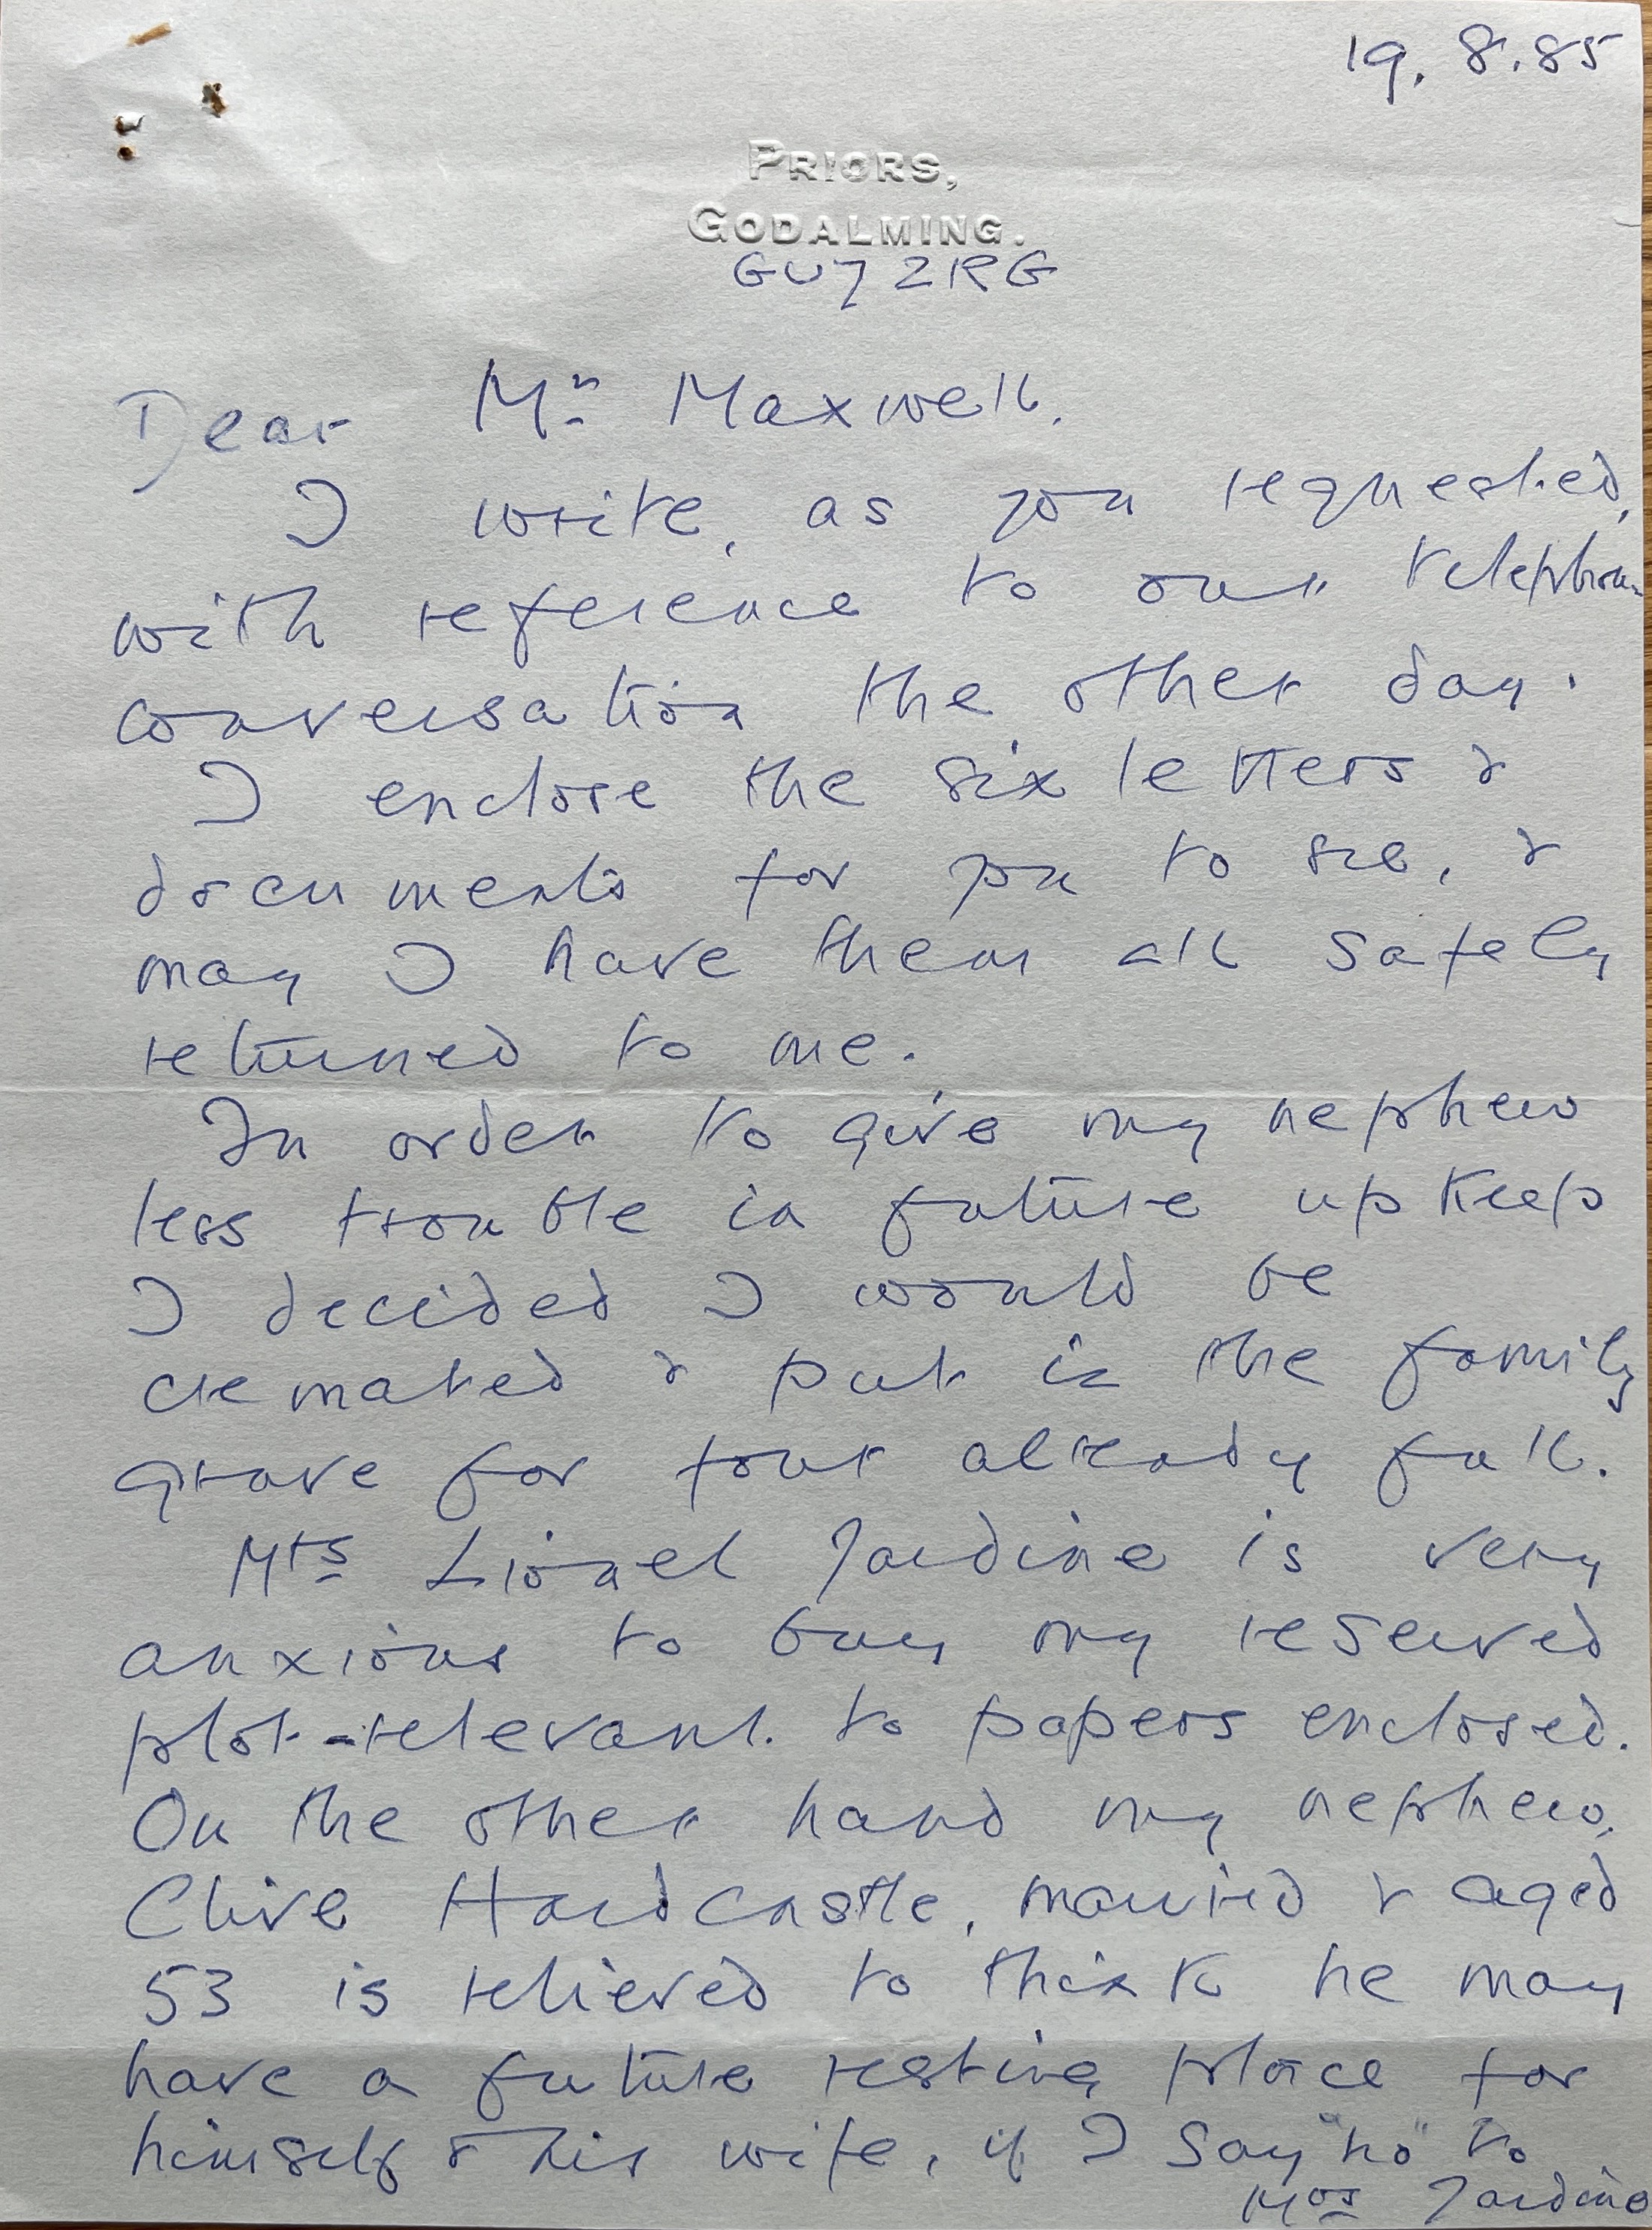 19.8.85
PRIORS,
GODALMING.
GU7 2RG
Dear Mr Maxwell.
I write, as you requested,
with reference to our telephone
conversation the other day.
I enclose the six letters &
documents for you to see, &
may I have them all safely
returned to me.
In order to give my nephew
less trouble in future upkeep
I decided I would be
cremated & put in the family
grave for four already full.
Mrs Lionel Jardine is very
anxious to buy my reserved
plot - relevant to papers enclosed.
On the other hand my nephew,
Clive Hardcastle, married & aged
53 is relieved to think he may
have a future resting place for
himself & his wife, if I say "no" to
Mrs Jardine